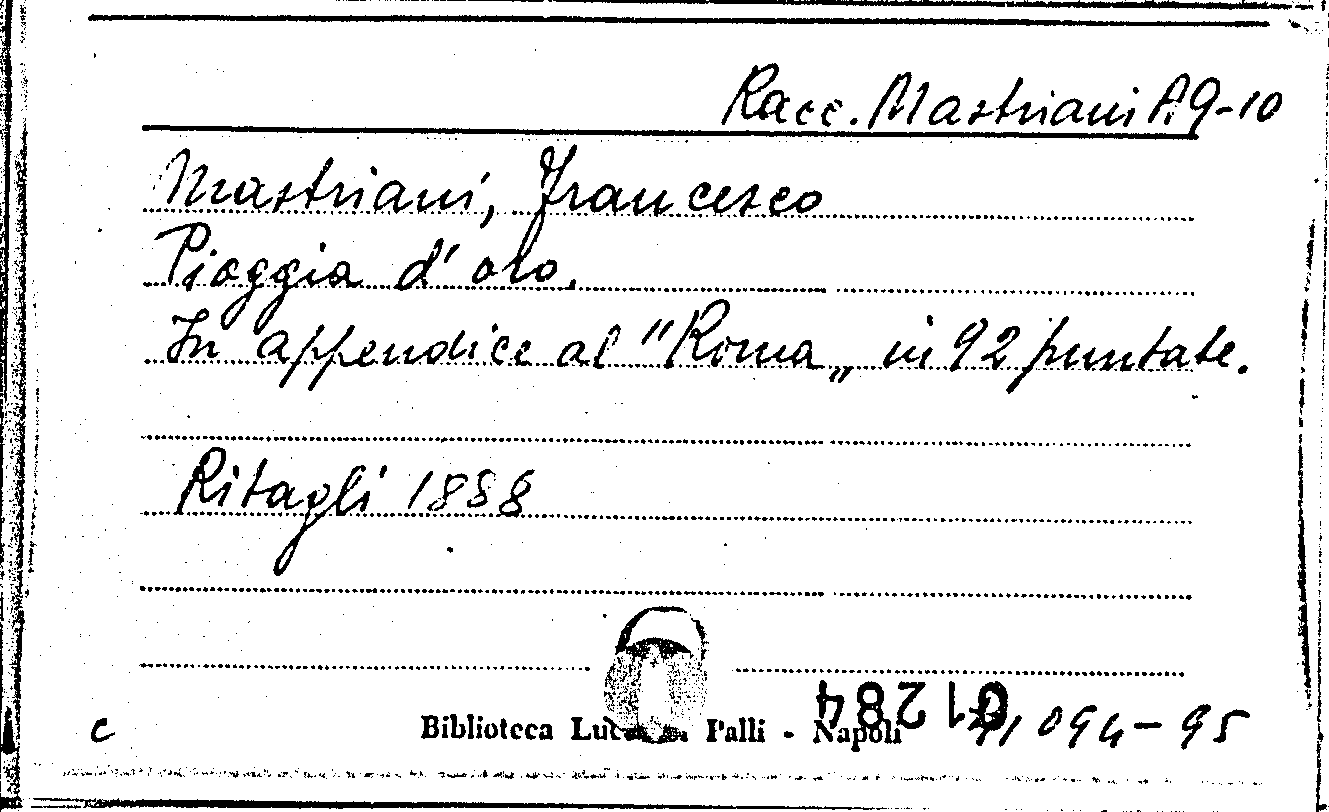 Racc. Mastriani A.9-10
Mastriani, Francesco
Pioggia d'oro.
In appendice al "Roma„ in 92 puntate.
Ritagli 1888
c
Biblioteca Palli - Napoli
094-95